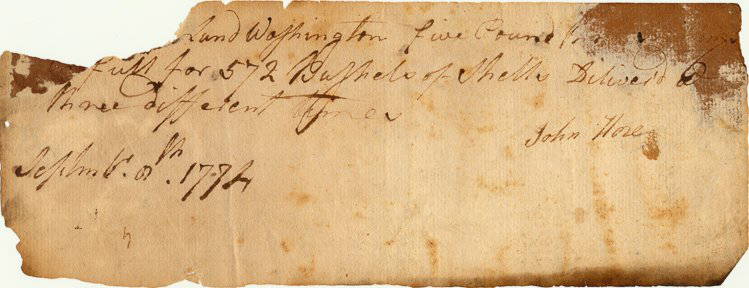 Lund Washington five Pound
full for 572 Bushels of Shells Deliverd @
three different times
John Hore
Septmbr. 8th. 1774